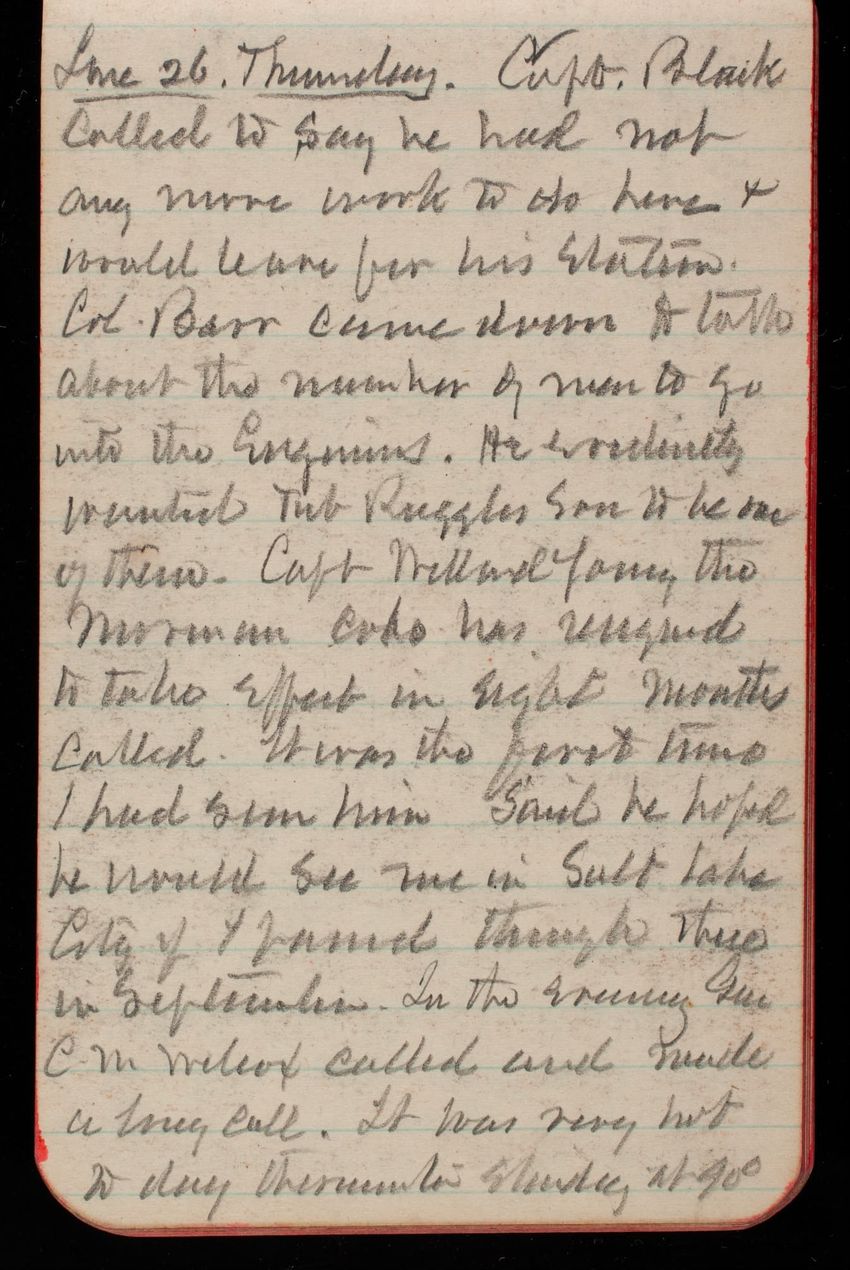 June 26. Thursday. Capt. Black
Called to say he had not
any more work to do here &
would leave for his Station.
Col. Barr came down to talk
about the number of men to go
into the Engineers. He evidently
wanted Tub Ruggles Son to be one
of them. Capt Willard Young, the
Morman who has resigned
to take effect in eight months
Called. It was the first time
I had seen him Said he hoped
he would see me in Salt Lake
City if I passed through there
in September. In the evening Gen
C. M. Wilcox called and made
a long call. It was very hot
to day thermometer standing at 90°